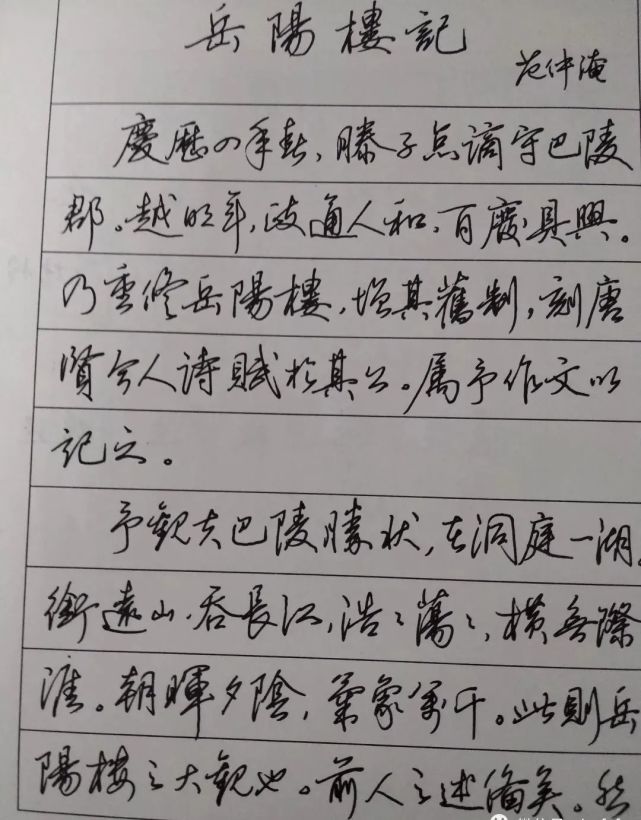 岳陽樓記
范仲淹
慶歷四年春,滕子京謫守巴陵
郡。越明年,政通人和,百廢具興。
乃重修岳陽樓,增其舊制,刻唐
賢今人詩賦於其上。属予作文以
記之。
予觀夫巴陵勝狀,在洞庭一湖。
銜遠山,吞長江,浩〻蕩〻,橫無際
涯。朝暉夕陰,氣象萬千。此則岳
陽樓之大觀也。前人之述備矣。然